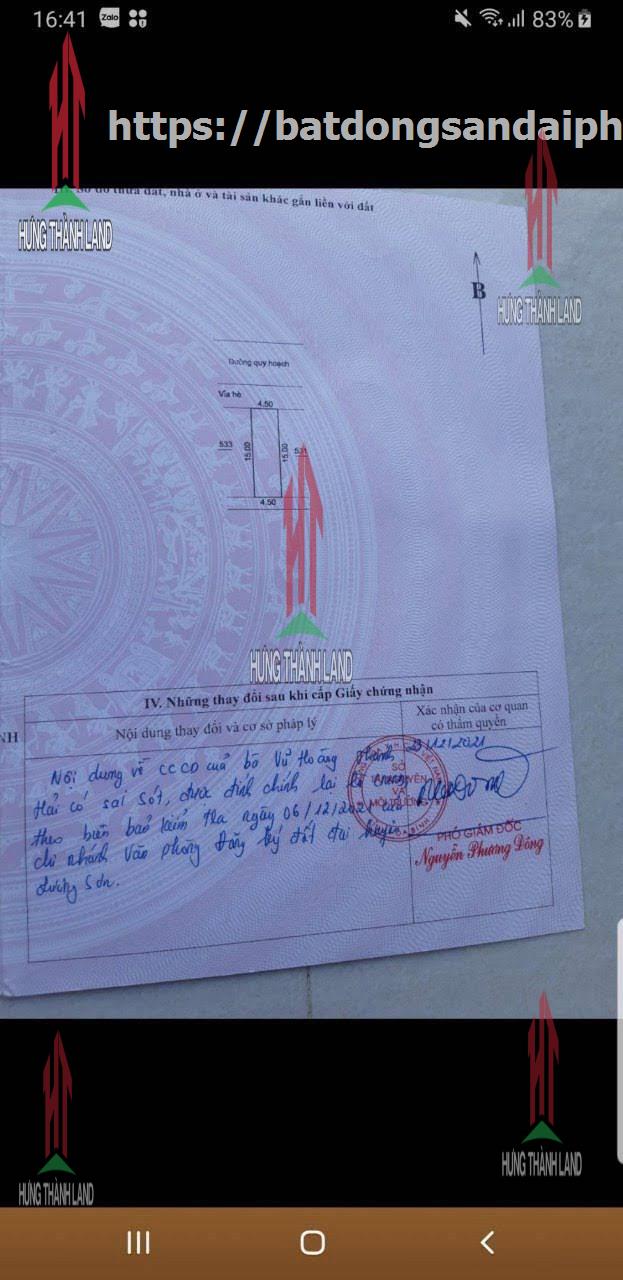 16:41 Zalo 83%
https://batdongsandaiph
HƯNG THÀNH LAND
III. Sơ đồ thửa đất, nhà ở và tài sản khác gắn liền với đất
HƯNG THÀNH LAND
B
Đường quy hoạch
Vỉa hè
4.50
533 15.00 15.00 531
4.50
HƯNG THÀNH LAND
IV. Những thay đổi sau khi cấp Giấy chứng nhận
NH
Nội dung thay đổi và cơ sở pháp lý
Xác nhận của cơ quan
có thẩm quyền
Nội dung về CCCD của bà Vũ Hoàng Thanh
Hải có sai sót, được đính chính lại
theo biên bản kiểm tra ngày 06/12/2021 của
chi nhánh Văn phòng Đăng ký đất đai huyện
Lương Sơn.
23/12/2021
SỞ
TÀI NGUYÊN
VÀ
MÔI TRƯỜNG
PHÓ GIÁM ĐỐC
Nguyễn Phương Đông
HƯNG THÀNH LAND
HƯNG THÀNH LAND